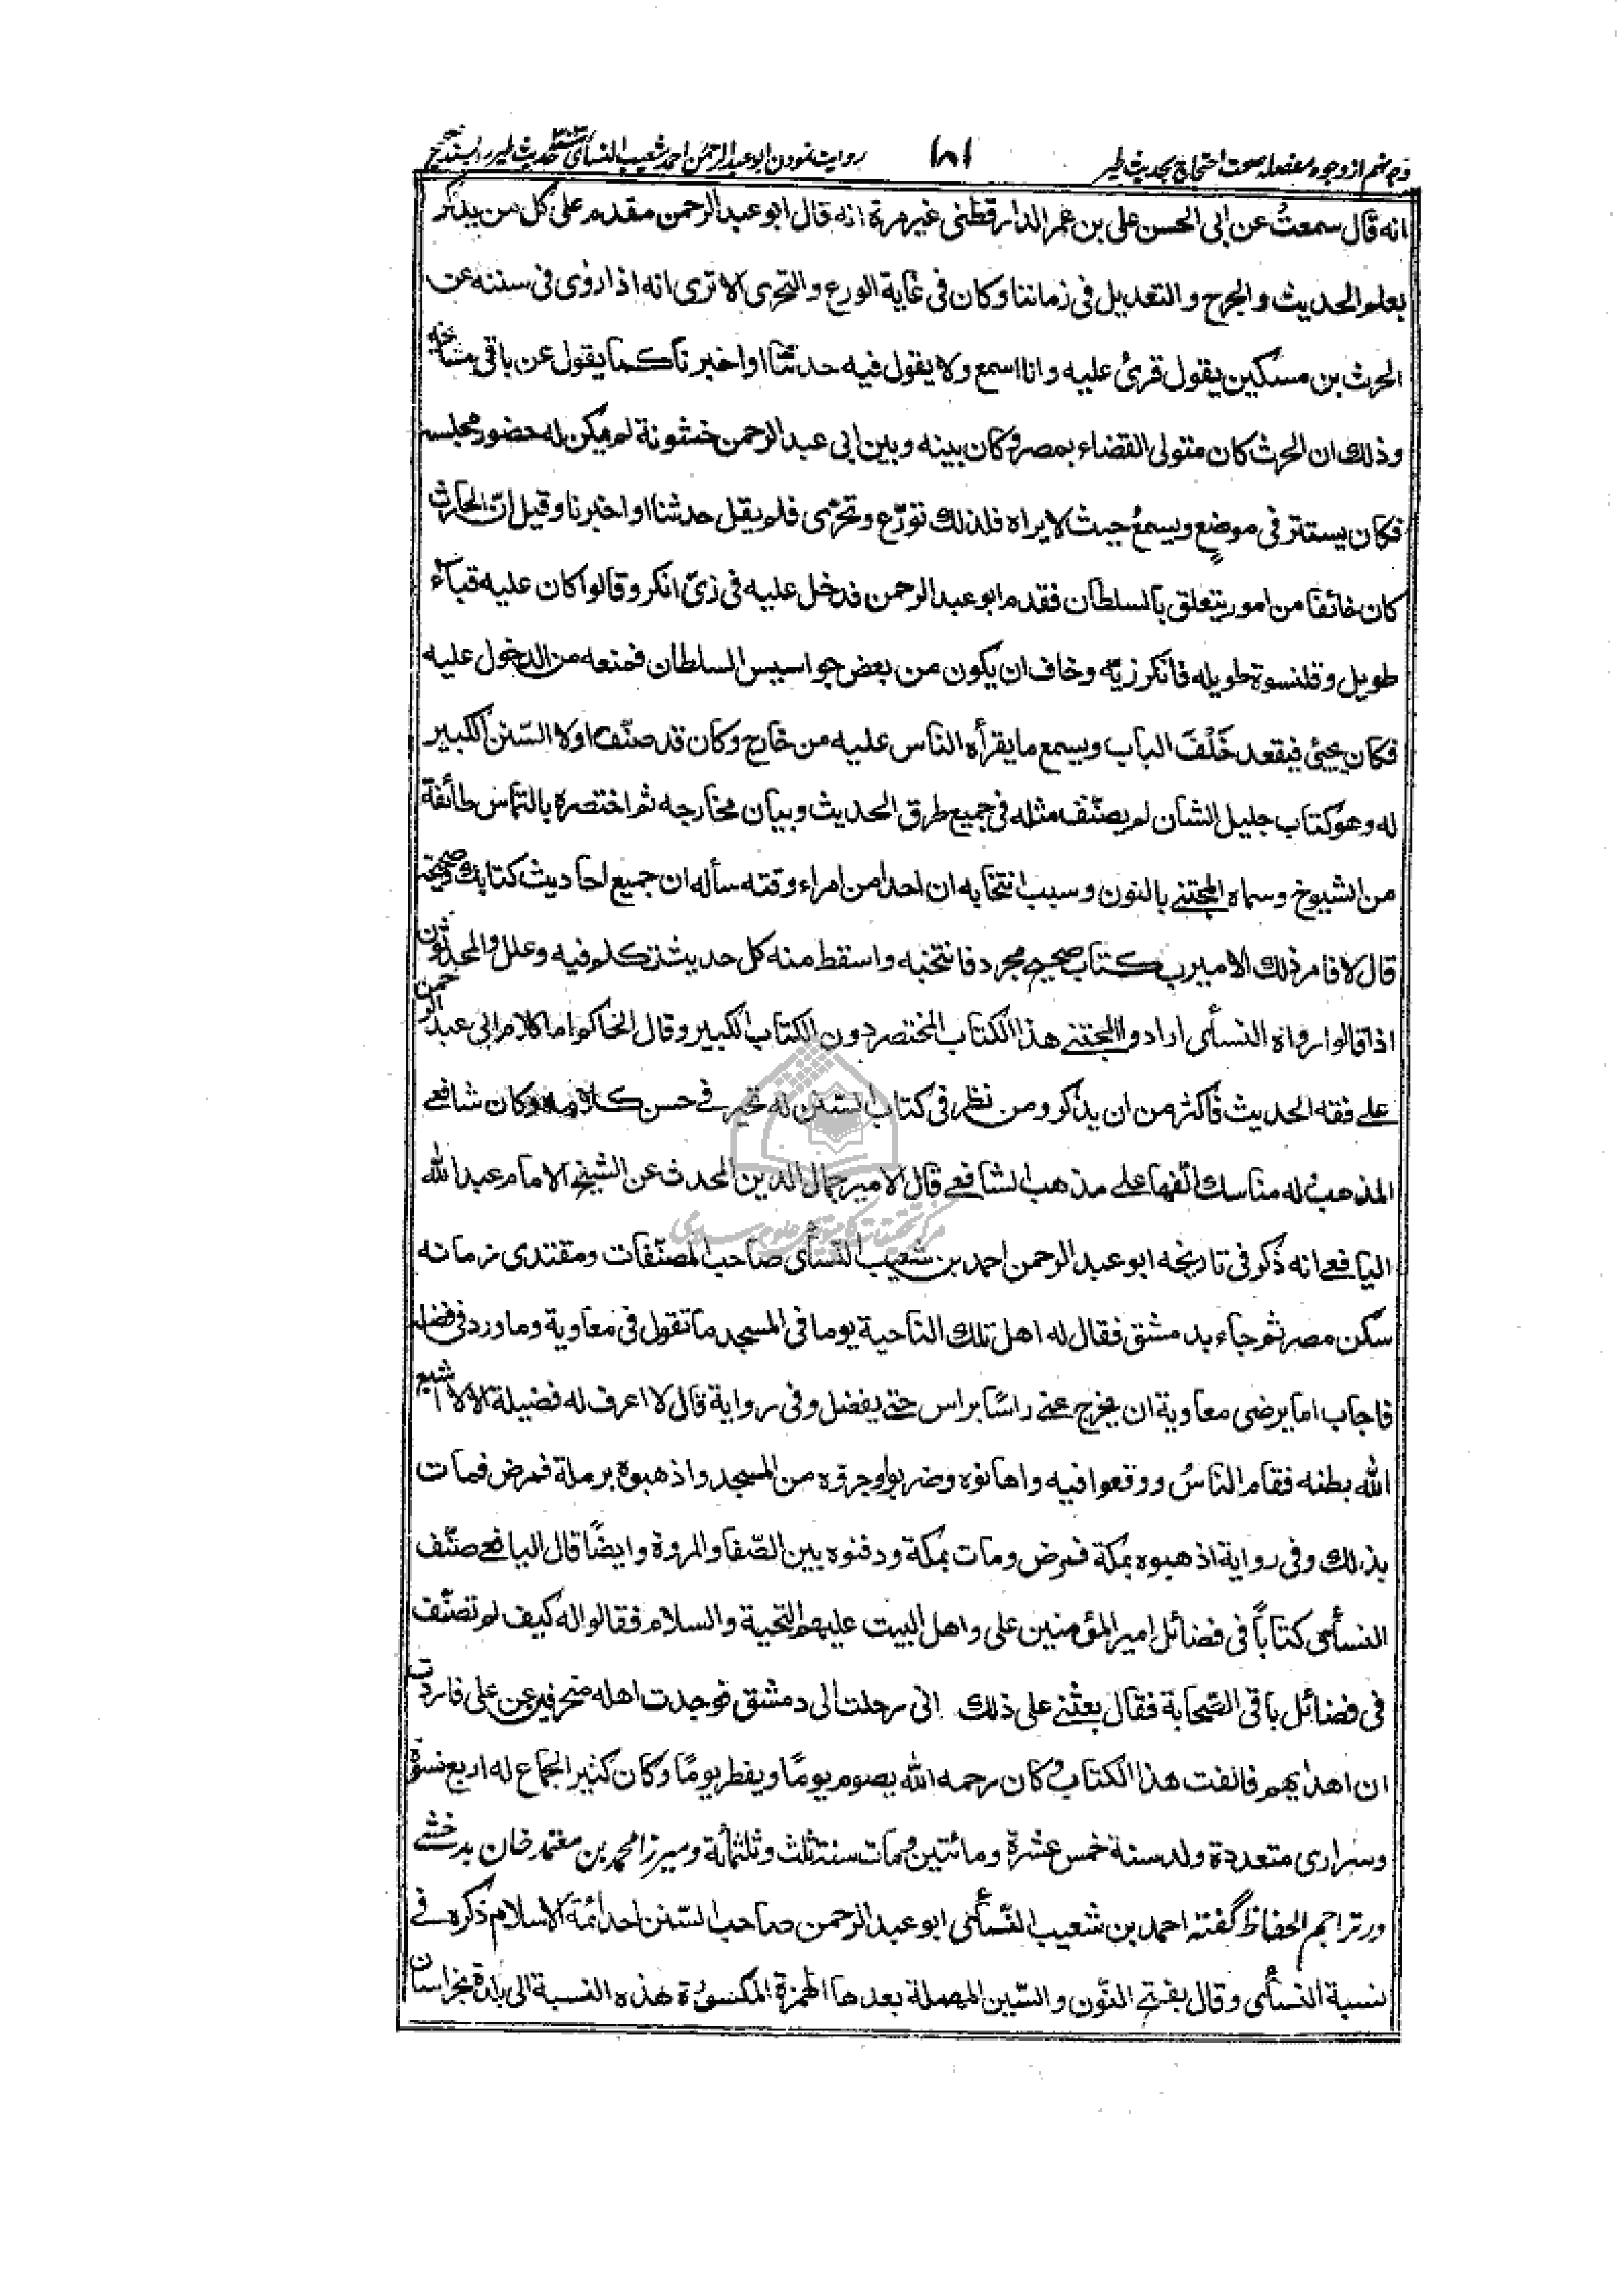 وجه نهم از وجوه مفصله صحت احتجاج بحدیث طیر ۱۸۱ روایت نمودن ابو عبد الرحمن احمد شعیب النسائی حدیث طیر را بسند صحیح
انه قال سمعتُ عن ابی الحسن علی بن عمر الدارقطنی غیر مرة انه قال ابو عبد الرحمن مقدم علی کل من یذکر
بعلم الحدیث والجرح والتعدیل فی زماننا وکان فی غایة الورع والتحری الا تری انه اذا روی فی سننه عن
الحرث بن مسکین یقول قرئ علیه وانا اسمع ولا یقول فیه حدثنا او اخبرنا کما یقول عن باقی مشایخه
وذلک ان الحرث کان متولی القضاء بمصر وکان بینه وبین ابی عبد الرحمن خشونة لم یکن له حضور مجلسه
فکان یستتر فی موضعٍ ویسمعُ حیث لا یراه فلذلک تورّع وتحرّی فلم یقل حدثنا او اخبرنا وقیل انّ الحارث
کان خائفا من امور یتعلق بالسلطان فقدم ابو عبد الرحمن فدخل علیه فی زیّ انکر وقالوا کان علیه قباء
طویل وقلنسوة طویله فانکر زیّه وخاف ان یکون من بعض جواسیس السلطان فمنعه من الدخول علیه
فکان یجیئ فیقعد خَلْفَ الباب ویسمع ما یقرأه الناس علیه من خارج وکان قد صنّف اولا السّنن الکبیر
له وهو کتاب جلیل الشان لم یصنّف مثله فی جمیع طرق الحدیث وبیان مخارجه ثم اختصره بالتماس طائفة
من الشیوخ وسماه المجتنی بالنون وسبب انتخابه ان احدا من امراء وقته سأله ان جمیع احادیث کتابک صحیح
قال لا فامر ذلک الامیر ب کتاب صحیح مجرد فانتخبه واسقط منه کل حدیث تکلم فیه وعلل والمحدثون
اذا قالوا رواه النسأی ارادوا المجتنی هذا الکتاب المختصر دون الکتاب الکبیر وقال الحاکم اما کلام ابی عبد الرحمن
علی فقه الحدیث فاکثر من ان یذکر ومن نظر فی کتاب السنن له تحیر فی حسن کلامه وکان شافعی
المذهب له مناسک الّفها علی مذهب الشافعی قال الامیر جمال الدین المحدث عن الشیخ الامام عبد الله
الیافعی انه ذکر فی تاریخه ابو عبد الرحمن احمد بن شعیب النسأی صاحب المصنّفات ومقتدی زمانه
سکن مصر ثم جاء بدمشق فقال له اهل تلک الناحیة یوما فی المسجد ما تقول فی معاویة وما ورد فی فضله
فاجاب اما یرضی معاویة ان یخرج عنی راسًا براس حتی یفضل وفی روایة قال لا اعرف له فضیلة الا لا اشبع
الله بطنه فقام الناسُ ووقعوا فیه واهانوه وضربوا وجروه من المسجد واذهبوه برملة فمرض فمات
بذلک وفی روایة اذهبوه بمکة فمرض ومات بمکة ودفنوه بین الصّفا والمروة وایضًا قال الیافعی صنّف
النسأی کتاباً فی فضائل امیر المؤمنین علی واهل البیت علیهم التحیة والسلام فقالوا له کیف لم تصنّف
فی فضائل باقی الصّحابة فقال بعثنی علی ذلک انی رحلت الی دمشق فوجدت اهله منحرفین عن علی فاردت
ان اهدایهم فالفت هذا الکتاب وکان رحمه الله یصوم یومًا ویفطر یومًا وکان کثیر الجماع له اربع نسوة
وسراری متعددة ولد سنة خمس عشرة ومائتین ومات سنة ثلث وثلثمائة ومیرزا محمد بن معتمد خان بدخشی
در تراجم الحفاظ گفته احمد بن شعیب النّسأی ابو عبد الرحمن صاحب السّنن احد ائمة الاسلام ذکره فی
نسبة النسأی وقال بفتح النّون والسّین المهملة بعدها الهمزة المکسورة هذه النسبة الی بلدة بخراسان
مرکز تحقیقات کامپیوتری علوم اسلامی